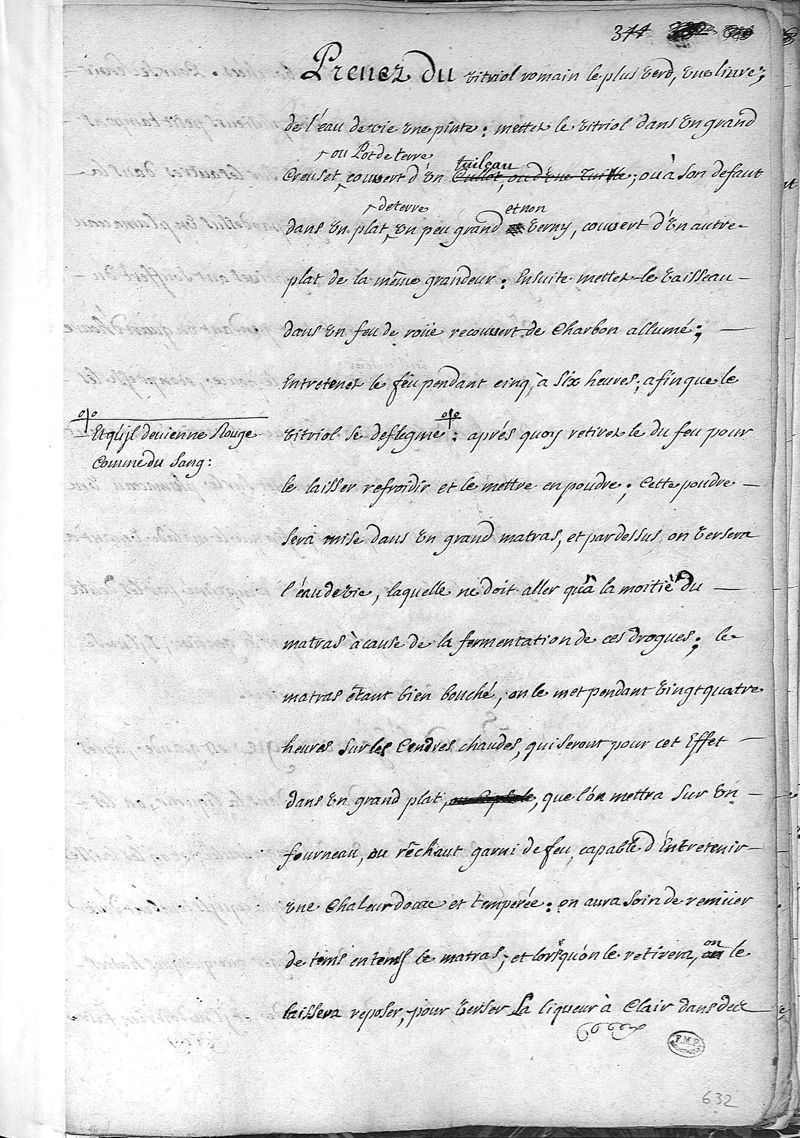 344
Prenez du vitriol romain le plus verd, une livre;
de l'eau de vie une pinte: mettez le vitriol dans un grand
ou Pot de terre
tuileau
Creuset, couvert d'un Cullot, ou d'une Tuille; ou à son defaut
de terre
et non
dans un plat, un peu grand verny, couvert d'un autre
plat de la même grandeur: Ensuite mettez le vaisseau
dans un feu de roüe recouvert de Charbon allumé;
Entretenez le feu pendant cinq, à six heures; afin que le
vitriol se deflegme: aprés quoy retirez le du feu pour
Et qu'il devienne Rouge
comme du sang:
le laisser refroidir et le mettre en poudre; Cette poudre
sera mise dans un grand matras, et par dessus on versera
l'éau de vie, laquelle ne doit aller qu'à la moitié du
matras à cause de la fermentation de ces drogues; le
matras êtant bien bouché, on le met pendant vingt quatre
heures sur les Cendres chaudes, qui seront pour cet Effet
dans un grand plat, que l'on mettra sur un
fourneau, ou rêchaut garni de feu, capable d'Entretenir
une Chaleur douce et temperée: on aura soin de remüer
de tems en tems le matras; et lorsqu'on le retirera, on le
laissera reposer, pour verser La liqueur à Clair dans des
F.M.P.
632